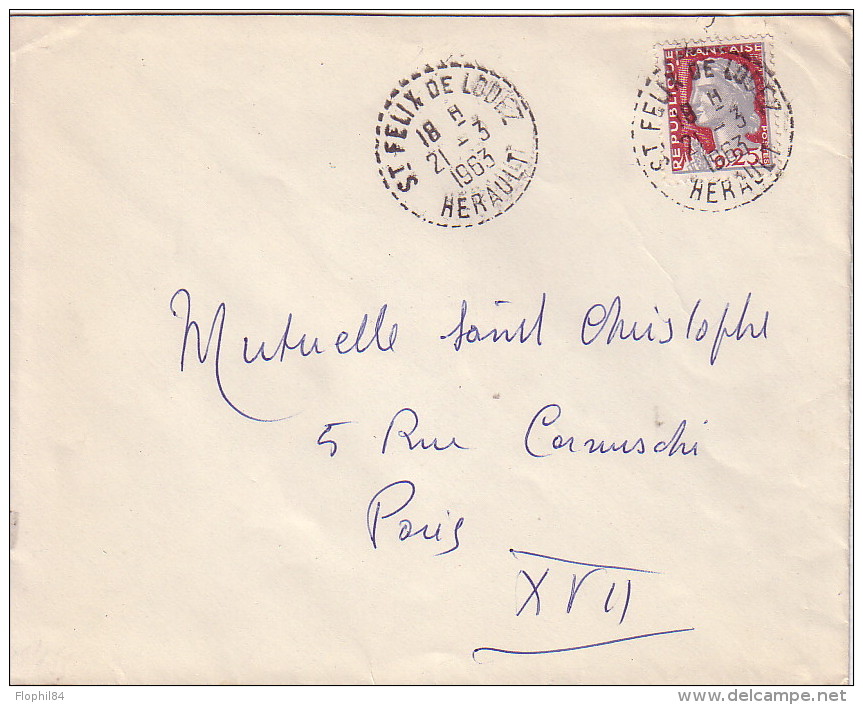 ST FELIX DE LODEZ
18 H
21 - 3
1963
HERAULT
REPUBLIQUE FRANCAISE
0,25
POSTES
ST FELIX DE LODEZ
18 H
21 - 3
1963
HERAULT
Mutuelle Saint Christophe
5 Rue Cernuschi
Paris
XVII
Flophil84
delcampe.net